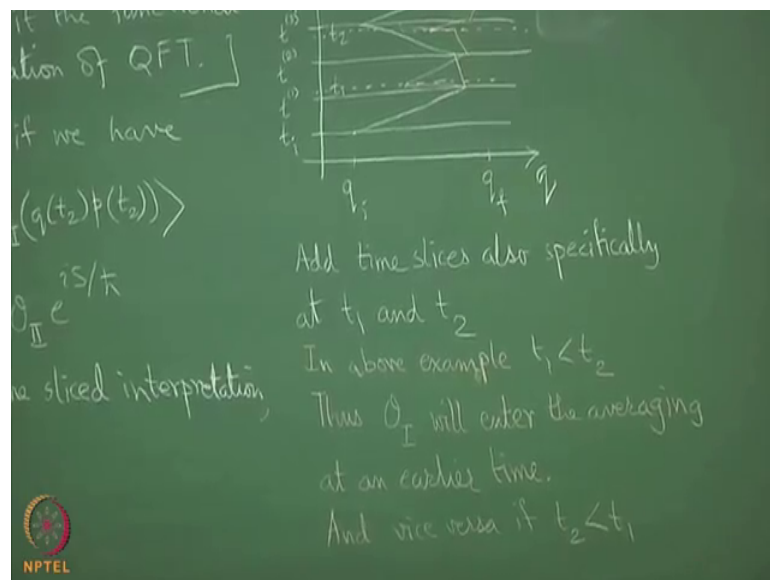 if the functional
ation of QFT. ]
if we have
I(q(t₂)p(t₂))⟩
O_II e^{iS/ħ}
e sliced interpretation,
t^(3)
t₂
t^(2)
t₁
t^(1)
t_i
q_i q_f q
Add time slices also specifically
at t₁ and t₂
In above example t₁<t₂
Thus O_I will enter the averaging
at an earlier time.
And vice versa if t₂<t₁
NPTEL